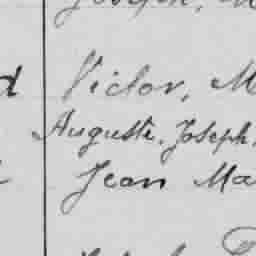 Joseph, M
d Victor, M
Auguste, Joseph,
Jean Ma